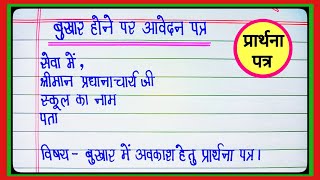 बुखार होने पर आवेदन पत्र
प्रार्थना
पत्र
सेवा में,
श्रीमान प्रधानाचार्य जी
स्कूल का नाम
पता
विषय- बुखार में अवकाश हेतु प्रार्थना पत्र।